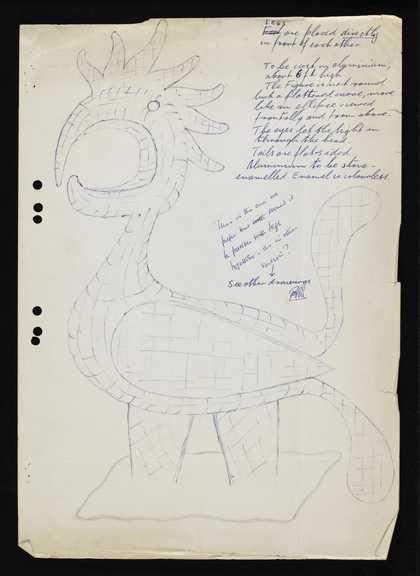 LEGS
are placed directly
in front of each other
To be cast in aluminium,
about 6 ft high.
The figure is not round
but a flattened curve, more
like an ellipse viewed
frontally and from above.
The eyes let the light in
through the head.
Tails are flat sided.
Aluminium to be stove-
enamelled. Enamel is colourless.
This is the one we
prefer but would it
be possible with legs
together - as in other
version?
See other drawings